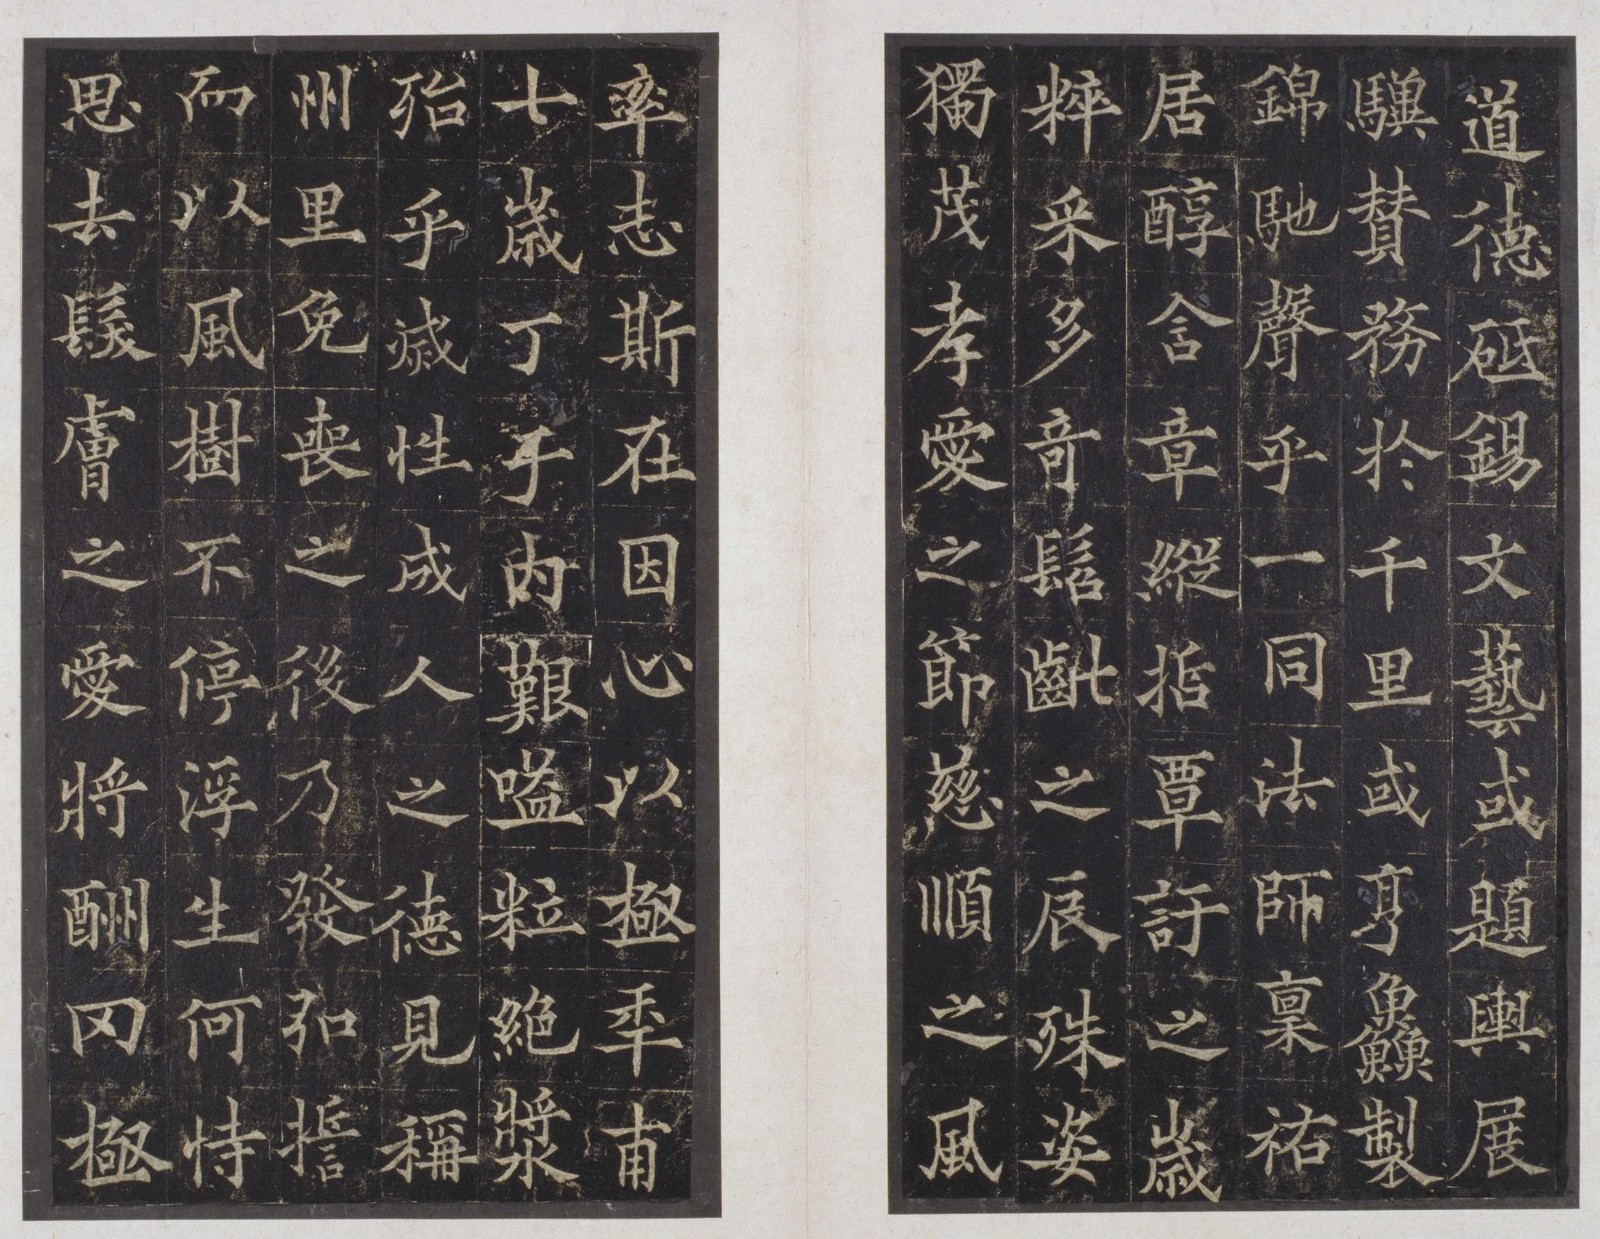 道德砥錫文藝或題輿展
驥賛務於千里或亨鱻製
錦馳聲乎一同法師稟祐
居醇含章縱括覃訏之歲
粹采多奇髫齓之辰殊姿
獨茂孝愛之節慈順之風
率志斯在因心以極年甫
七歲丁于内艱嗌粒絶漿
殆乎滅性成人之德見稱
州里免喪之後乃發弘誓
而以風樹不停浮生何恃
思去髮膚之愛將酬罔極